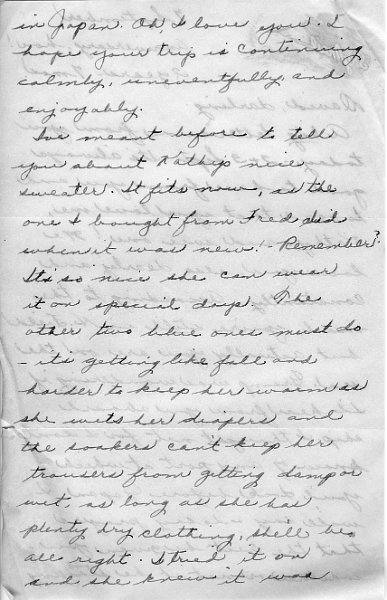 in Japan. Oh, I love you. I
hope your trip is continuing
calmly, uneventfully, and
enjoyably.
I've meant before to tell
you about Kathy's nice
sweater. It fits now, as the
one I bought from Fred did
when it was new! - Remember?
Its so nice she can wear
it on special days. The
other two blue ones must do
- it's getting like fall and
harder to keep her warm as
she wets her diapers and
the soakers can't keep her
trousers from getting damp or
wet, as long as she has
plenty dry clothing, she'll be
all right. I tried it on
and she knew it was